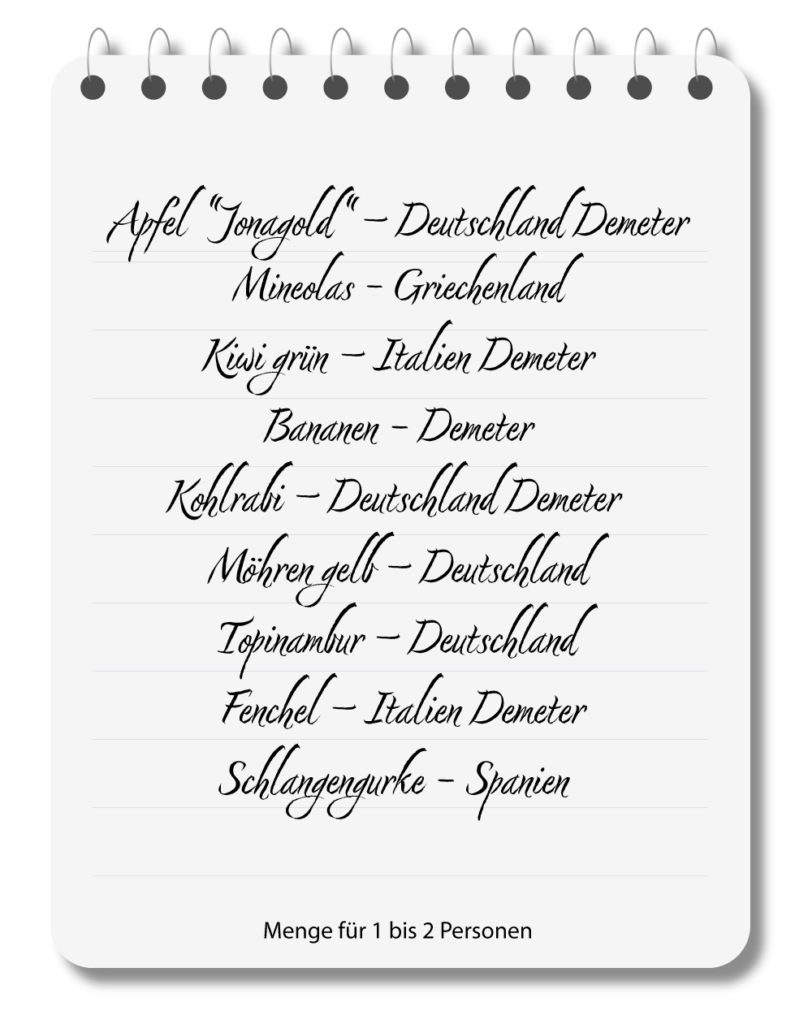 Apfel "Jonagold" – Deutschland Demeter
Mineolas – Griechenland
Kiwi grün – Italien Demeter
Bananen – Demeter
Kohlrabi – Deutschland Demeter
Möhren gelb – Deutschland
Topinambur – Deutschland
Fenchel – Italien Demeter
Schlangengurke – Spanien
Menge für 1 bis 2 Personen